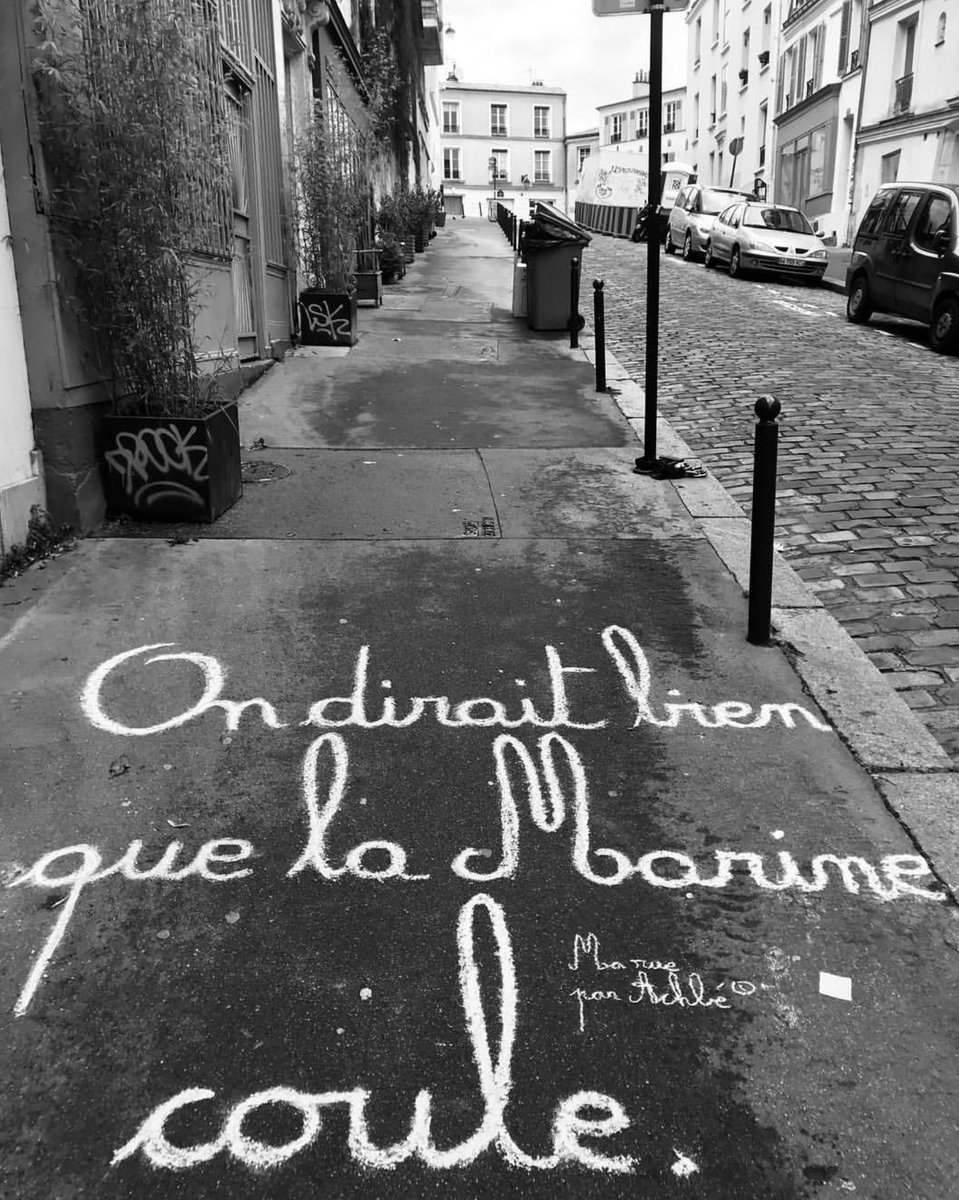 On dirait bien
que la Marine
coule.
Ma rue
par Achbé ©